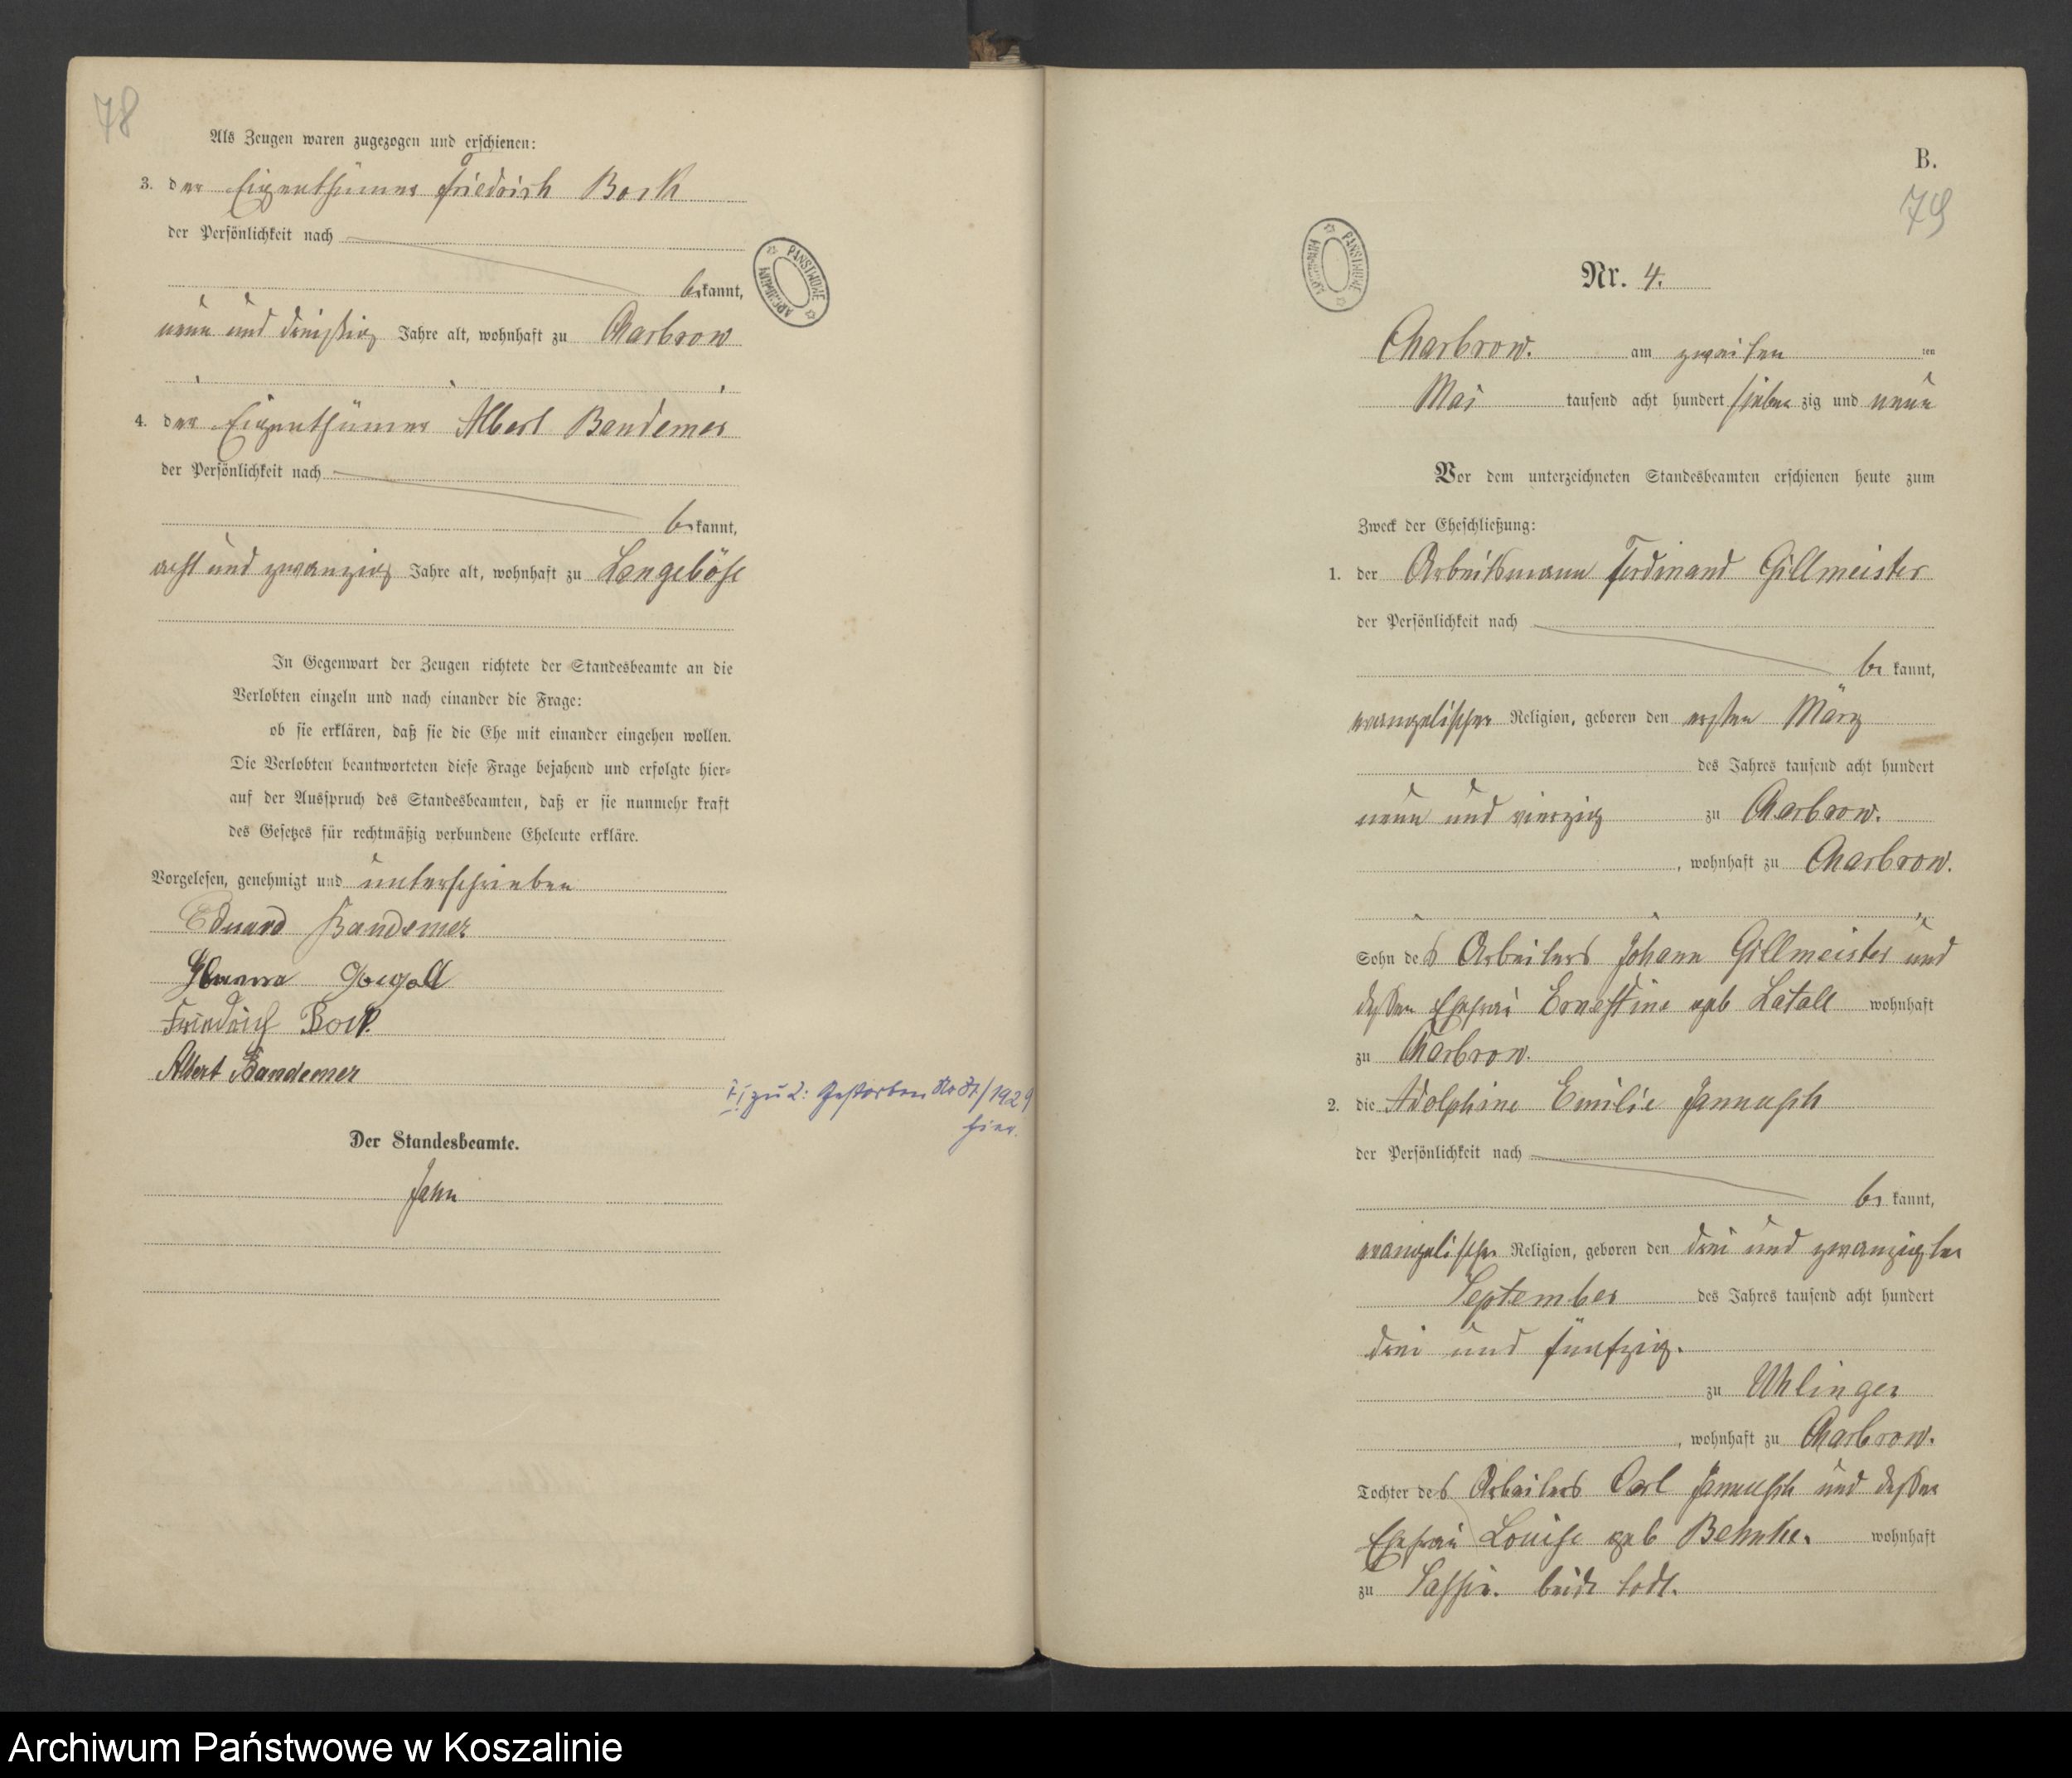 78
Als Zeugen waren zugezogen und erschienen:
3. der Eigenthümer Friedrich Bock
der Persönlichkeit nach
bekannt,
neun und dreißig Jahre alt, wohnhaft zu Charbrow
4. der Eigenthümer Albert Bandemer
der Persönlichkeit nach
bekannt,
acht und zwanzig Jahre alt, wohnhaft zu Langeböse
In Gegenwart der Zeugen richtete der Standesbeamte an die
Verlobten einzeln und nach einander die Frage:
ob sie erklären, daß sie die Ehe mit einander eingehen wollen.
Die Verlobten beantworteten diese Frage bejahend und erfolgte hier-
auf der Ausspruch des Standesbeamten, daß er sie nunmehr kraft
des Gesetzes für rechtmäßig verbundene Eheleute erkläre.
Vorgelesen, genehmigt und unterschrieben
Eduard Bandemer
Friedrich Bock
Albert Bandemer
zu 2: Gestorben No /1929
hier.
Der Standesbeamte.
Jahn
B.
79
ARCHIWUM PAŃSTWOWE
Nr. 4.
Charbrow. am zweiten ten
Mai tausend acht hundert siebenzig und neun
Vor dem unterzeichneten Standesbeamten erschienen heute zum
Zweck der Eheschließung:
1. der Arbeitsmann Ferdinand Gillmeister
der Persönlichkeit nach
bekannt,
evangelischer Religion, geboren den ersten März
des Jahres tausend acht hundert
neun und vierzig zu Charbrow.
, wohnhaft zu Charbrow.
Sohn des Arbeiters Johann Gillmeister und
dessen Ehefrau Ernestine geb Latall wohnhaft
zu Charbrow.
2. die Adolphine Emilie Jannusch
der Persönlichkeit nach
bekannt,
evangelischer Religion, geboren den drei und zwanzigsten
September des Jahres tausend acht hundert
drei und fünfzig.
zu Uhlingen
, wohnhaft zu Charbrow.
Tochter des Arbeiters Carl Jannusch und dessen
Ehefrau Louise geb Behnke. wohnhaft
zu Sassin. beide todt.
Archiwum Państwowe w Koszalinie